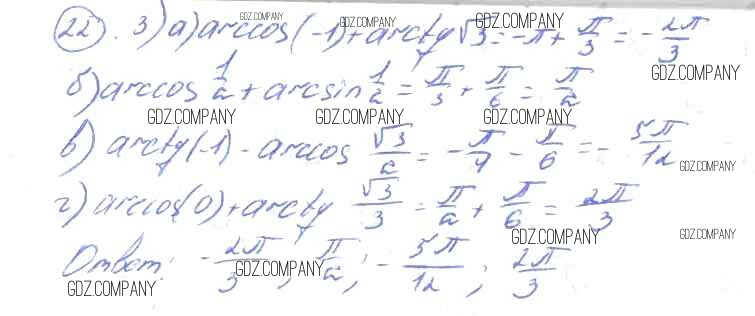 22. 3) а) arccos(-1) + arctg √3 = -π + π/3 = -2π/3
б) arccos 1/2 + arcsin 1/2 = π/3 + π/6 = π/2
в) arctg(-1) - arccos √3/2 = -π/4 - π/6 = -5π/12
г) arccos(0) + arctg √3/3 = π/2 + π/6 = 2π/3
Ответ: -2π/3; π/2; -5π/12; 2π/3
GDZ.COMPANY GDZ.COMPANY GDZ.COMPANY
GDZ.COMPANY
GDZ.COMPANY GDZ.COMPANY GDZ.COMPANY
GDZ.COMPANY
GDZ.COMPANY GDZ.COMPANY
GDZ.COMPANY
GDZ.COMPANY